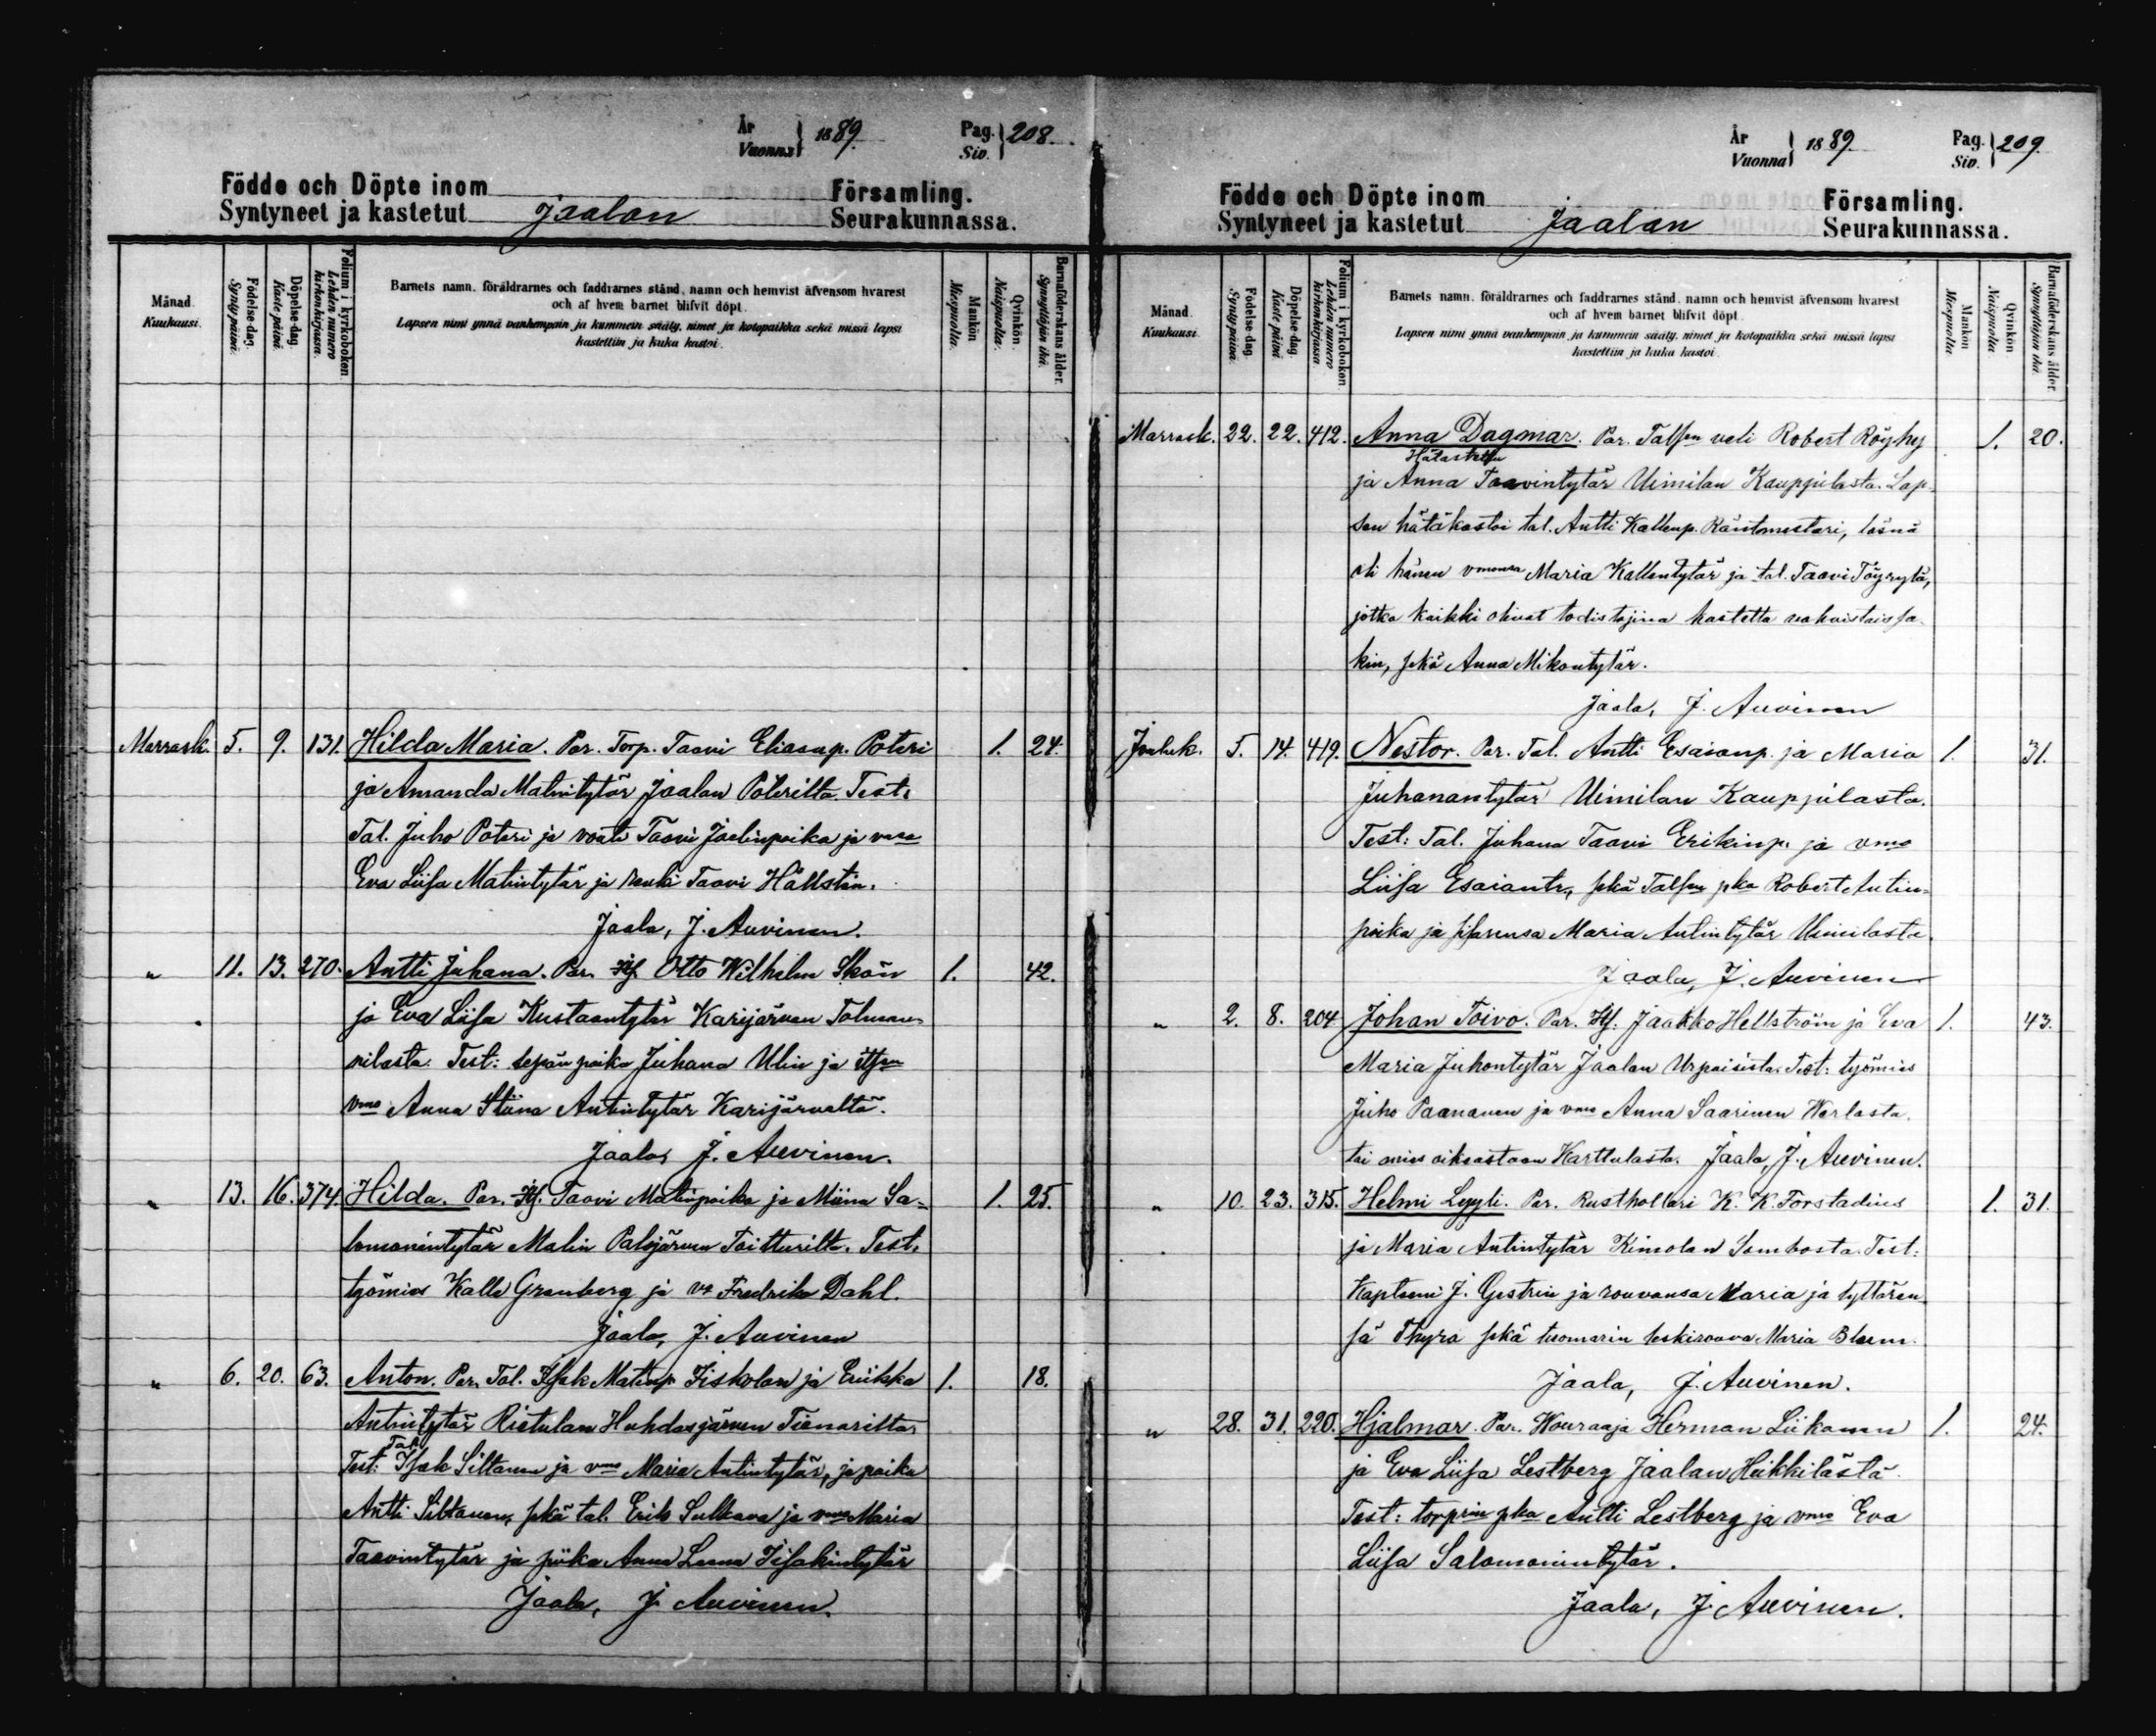 År
Vuonna 1889.
Pag.
Siv. 208.
Födde och Döpte inom Församling.
Syntyneet ja kastetut Jaalan Seurakunnassa.
Månad. Kuukausi.
Födelse-dag. Synty päivä.
Döpelse-dag. Kaste päivä.
Folium i kyrkoboken. Lehden numero kirkonkirjassa.
Barnets namn, föräldrarnes och faddrarnes stånd, namn och hemvist äfvensom hvarest
och af hvem barnet blifvit döpt.
Lapsen nimi ynnä vanhempain ja kummein sääty, nimet ja kotopaikka sekä missä lapsi
kastettiin ja kuka kastoi.
Mankön Miespuolia.
Qvinkön. Naispuolia.
Barnaföderskans ålder. Synnyttäjän ikä.
Marrask. 5. 9. 131. Hilda Maria. Par. Torp. Taavi Eliasnp. Poteri 1. 24.
ja Amanda Matintytär Jaalan Poterilta. Test.
Tal. Juho Poteri ja Taavi Joelinpoika ja
Eva Liisa Matintytär ja renki Taavi Hällstén.
Jaala, J. Auvinen.
" 11. 13. 270. Antti Juhana. Par. Itf. Otto Wilhelm Skön 1. 42.
ja Eva Liisa Kustaantytär Karijärven Tolman-
nilasta. Test: sepän poika Juhana Ulin ja
vmo Anna Stiina Antintytär Karijärveltä.
Jaala, J. Auvinen.
" 13. 16. 374. Hilda. Par. Itf. Taavi Matinpoika ja Miina Sa- 1. 25.
lomonintytär Malin Palojärven Toitturilta. Test.
työmies Kalle Grenberg ja Fredrika Dahl.
Jaala, J. Auvinen
" 6. 20. 63. Anton. Par. Tal. Isak Matinp. Iiskolan ja Eriikka 1. 18.
Antintytär Rietulan Huhdasjärven Tienarilta
Tal.
Test: Isak Siltanen ja vmo Maria Antintytär, ja poika
Antti Siltanen, sekä tal. Erik Sulkava ja vmo Maria
Taavintytär ja piika Anna Leena Iisakintytär
Jaala, J. Auvinen.
År
Vuonna 1889.
Pag.
Siv. 209.
Födde och Döpte inom Församling.
Syntyneet ja kastetut Jaalan Seurakunnassa.
Månad. Kuukausi.
Födelse-dag. Synty päivä.
Döpelse-dag. Kaste päivä.
Folium i kyrkoboken. Lehden numero kirkonkirjassa.
Barnets namn, föräldrarnes och faddrarnes stånd, namn och hemvist äfvensom hvarest
och af hvem barnet blifvit döpt.
Lapsen nimi ynnä vanhempain ja kummein sääty, nimet ja kotopaikka sekä missä lapsi
kastettiin ja kuka kastoi.
Mankön Miespuolia
Qvinkön Naispuolia
Barnaföderskans ålder. Synnyttäjän ikä.
Marrask. 22. 22. 412. Anna Dagmar. Par. Talsen veli Robert Röyhy 1. 20.
ja Anna Taavintytär Uimilan Kauppilasta. Lap-
sen hätäkastoi tal. Antti Kallenp. Räntmestari, läsnä
oli hänen vmonsa Maria Kallentytär ja tal. Taavi Töyrylä,
jotka kaikki olivat todistajina kastetta vahvistaissa-
kin, sekä Anna Mikontytär.
Jaala, J. Auvinen
Jouluk. 5. 14. 419. Nestor. Par. Tal. Antti Esaianp. ja Maria 1. 31.
Juhanantytär Uimilan Kauppilasta.
Test: Tal. Juhana Taavi Erikinp. ja vmo
Liisa Esaiantr, sekä Talsen pka Robert Antin-
poika ja sisarensa Maria Antintytär Uimilasta.
Jaala, J. Auvinen
" 2. 8. 204 Johan Toivo. Par. Itf. Jaakko Hellström ja Eva 1. 43.
Maria Juhontytär Jaalan Urpaisista. Test: työmies
Juho Paananen ja vmo Anna Saarinen Werlasta.
tai oikeastaan Karttulasta. Jaala, J. Auvinen.
" 10. 23. 315. Helmi Lyyli. Par. Rusthollari K. K. Forstadius 1. 31.
ja Maria Antintytär Kimolan Sombosta. Test:
Kapteeni J. Gestrin ja rouvansa Maria ja tyttären-
sä Thyra sekä tuomarin leskirouva Maria Blom.
Jaala, J. Auvinen.
" 28. 31. 220. Hjalmar. Par. Wouraaja Herman Liikanen 1. 24.
ja Eva Liisa Lestberg Jaalan Heikkilästä
Test: torprin pka Antti Lestberg ja vmo Eva
Liisa Salomonintytär.
Jaala, J. Auvinen.